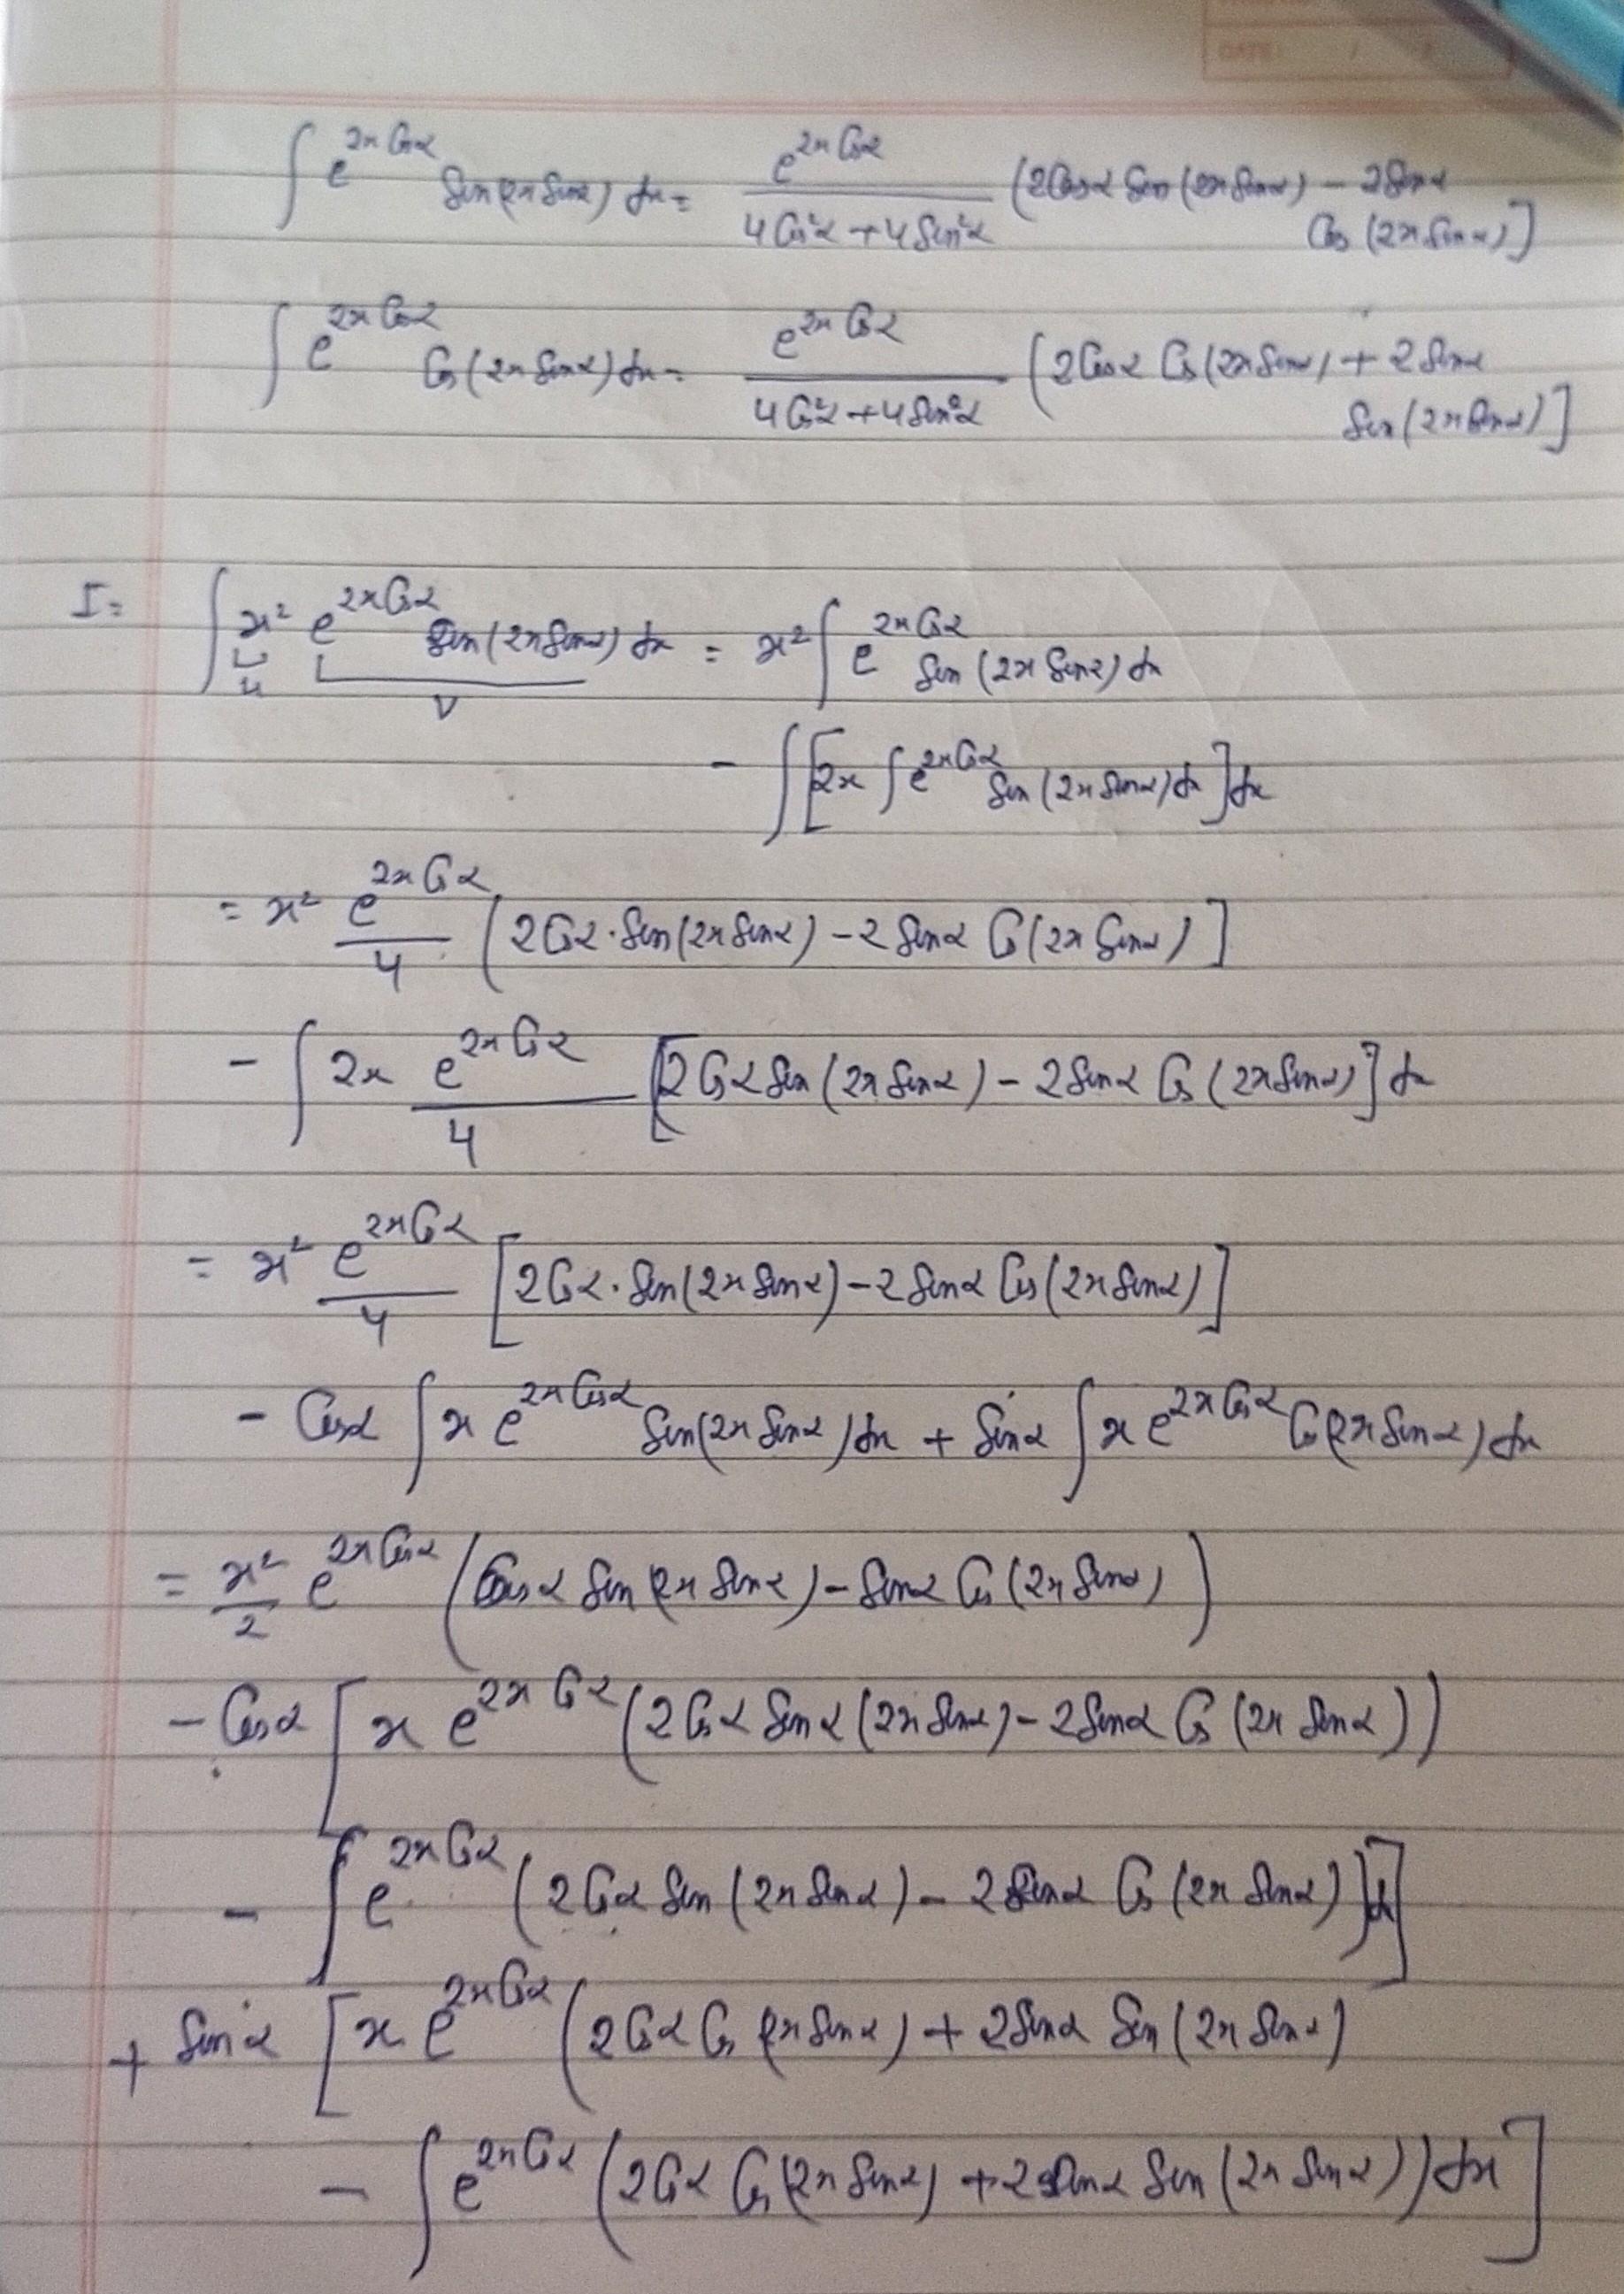 DATE: / /
∫ e^{2x Cosα} Sin(2x Sinα) dx = e^{2x Cosα} / (4Cos²α + 4Sin²α) (2Cosα Sin(2x Sinα) – 2Sinα
Cos (2x Sinα)]
∫ e^{2x Cosα} Cos(2x Sinα) dx = e^{2x Cosα} / (4Cos²α + 4Sin²α) (2Cosα Cos(2x Sinα) + 2Sinα
Sin(2x Sinα)]
I = ∫ x² e^{2x Cosα} Sin(2x Sinα) dx = x² ∫ e^{2x Cosα} Sin (2x Sinα) dx
u v
– ∫ [2x ∫ e^{2x Cosα} Sin (2x Sinα) dx ] dx
= x² e^{2x Cosα} / 4 ( 2Cosα · Sin(2x Sinα) – 2 Sinα Cos(2x Sinα) ]
– ∫ 2x e^{2x Cosα} / 4 [2Cosα Sin (2x Sinα) – 2Sinα Cos (2x Sinα)] dx
= x² e^{2x Cosα} / 4 [ 2Cosα · Sin(2x Sinα) – 2 Sinα Cos(2x Sinα) ]
– Cosα ∫ x e^{2x Cosα} Sin(2x Sinα) dx + Sinα ∫ x e^{2x Cosα} Cos(2x Sinα) dx
= x²/2 e^{2x Cosα} (Cosα Sin(2x Sinα) – Sinα Cos(2x Sinα) )
– Cosα [ x e^{2x Cosα} (2Cosα Sinα (2x Sinα) – 2Sinα Cos (2x Sinα) )
– ∫ e^{2x Cosα} ( 2Cosα Sin (2x Sinα) – 2Sinα Cos (2x Sinα) ) dx ]
+ Sinα [ x e^{2x Cosα} ( 2Cosα Cos (2x Sinα) + 2Sinα Sin (2x Sinα)
– ∫ e^{2x Cosα} ( 2Cosα Cos (2x Sinα) + 2Sinα Sin (2x Sinα) ) dx ]